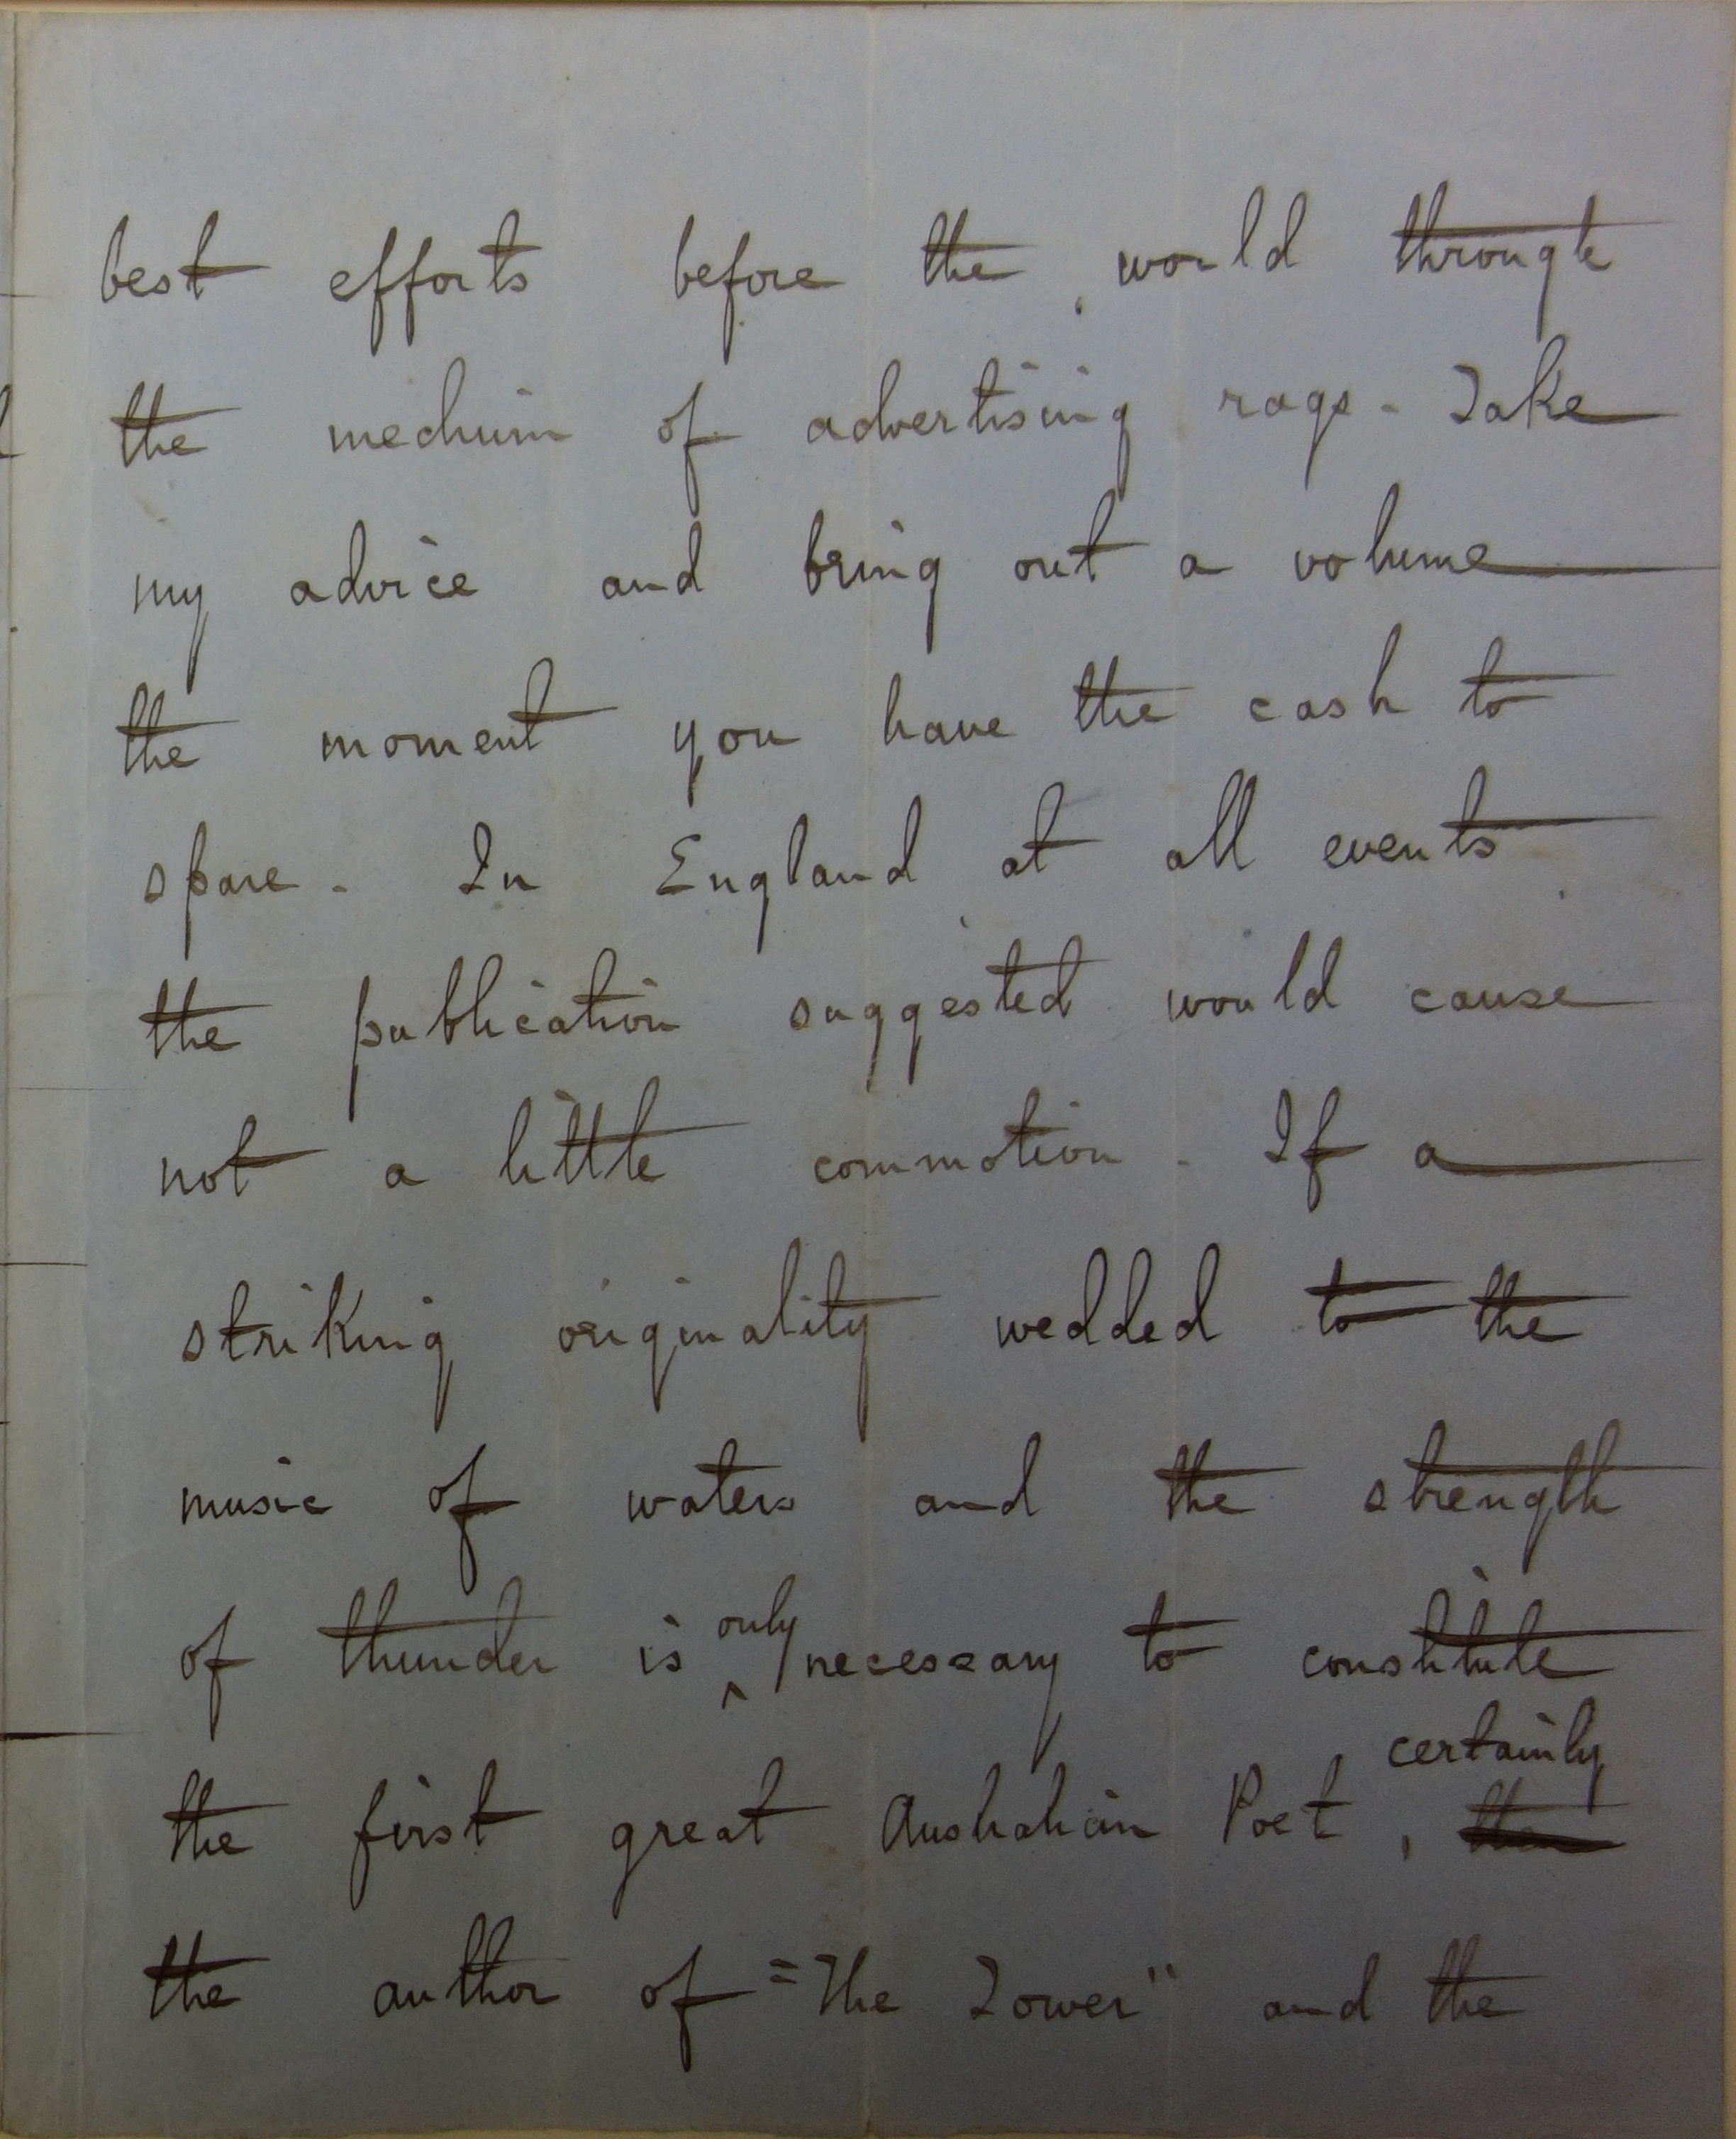 best efforts before the world through
the medium of advertising rags. Take
my advice and bring out a volume
the moment you have the cash to
spare. In England at all events
the publication suggested would cause
not a little commotion. If a
striking originality wedded to the
music of waters and the strength
of thunder is only necessary to constitute
the first great Australian Poet, certainly
the author of "The Tower" and the